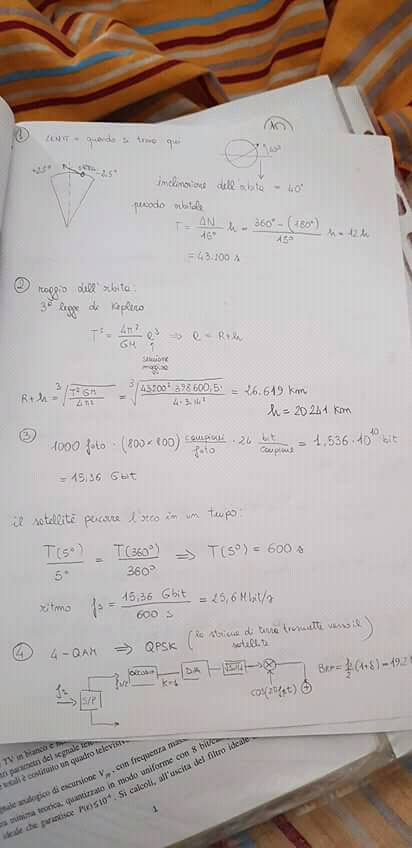 1 ZENIT = quando si trova qui
+2.5° -2.5°
40°
inclinazione dell'orbita = 40°
periodo orbitale
T = ΔN/15° h = 360° - (180°)/15° h = 12 h
= 43.200 s
2 raggio dell'orbita:
3° legge di Keplero
T² = 4π²/GM R³ ⇒ R = R+h
semiasse maggiore
R+h = ³√(T² GM/4π²) = ³√(43200² · 398600,5/4·3.14²) = 26.619 km
h = 20241 km
3 1000 foto · (800×800) campioni/foto · 24 bit/campione = 1,536·10¹⁰ bit
= 15,36 Gbit
il satellite percorre l'arco in un tempo:
T(5°)/5° = T(360°)/360° ⇒ T(5°) = 600 s
ritmo fs = 15,36 Gbit/600 s = 25,6 Mbit/s
4 4-QAM ⇒ QPSK (la stazione di terra trasmette verso il satellite)
S/P K=1 D/A cos(2πfot) BRF = (1+δ) = 19.2
TV in bianco e
tri parametri del segnale
totali è costituito un quadro televisivo
gnale analogico di escursione Vpp, con frequenza
minima teorica, quantizzato in modo uniforme con 8 bit/
ideale che garantisce Si calcoli, all'uscita del filtro ideale
1